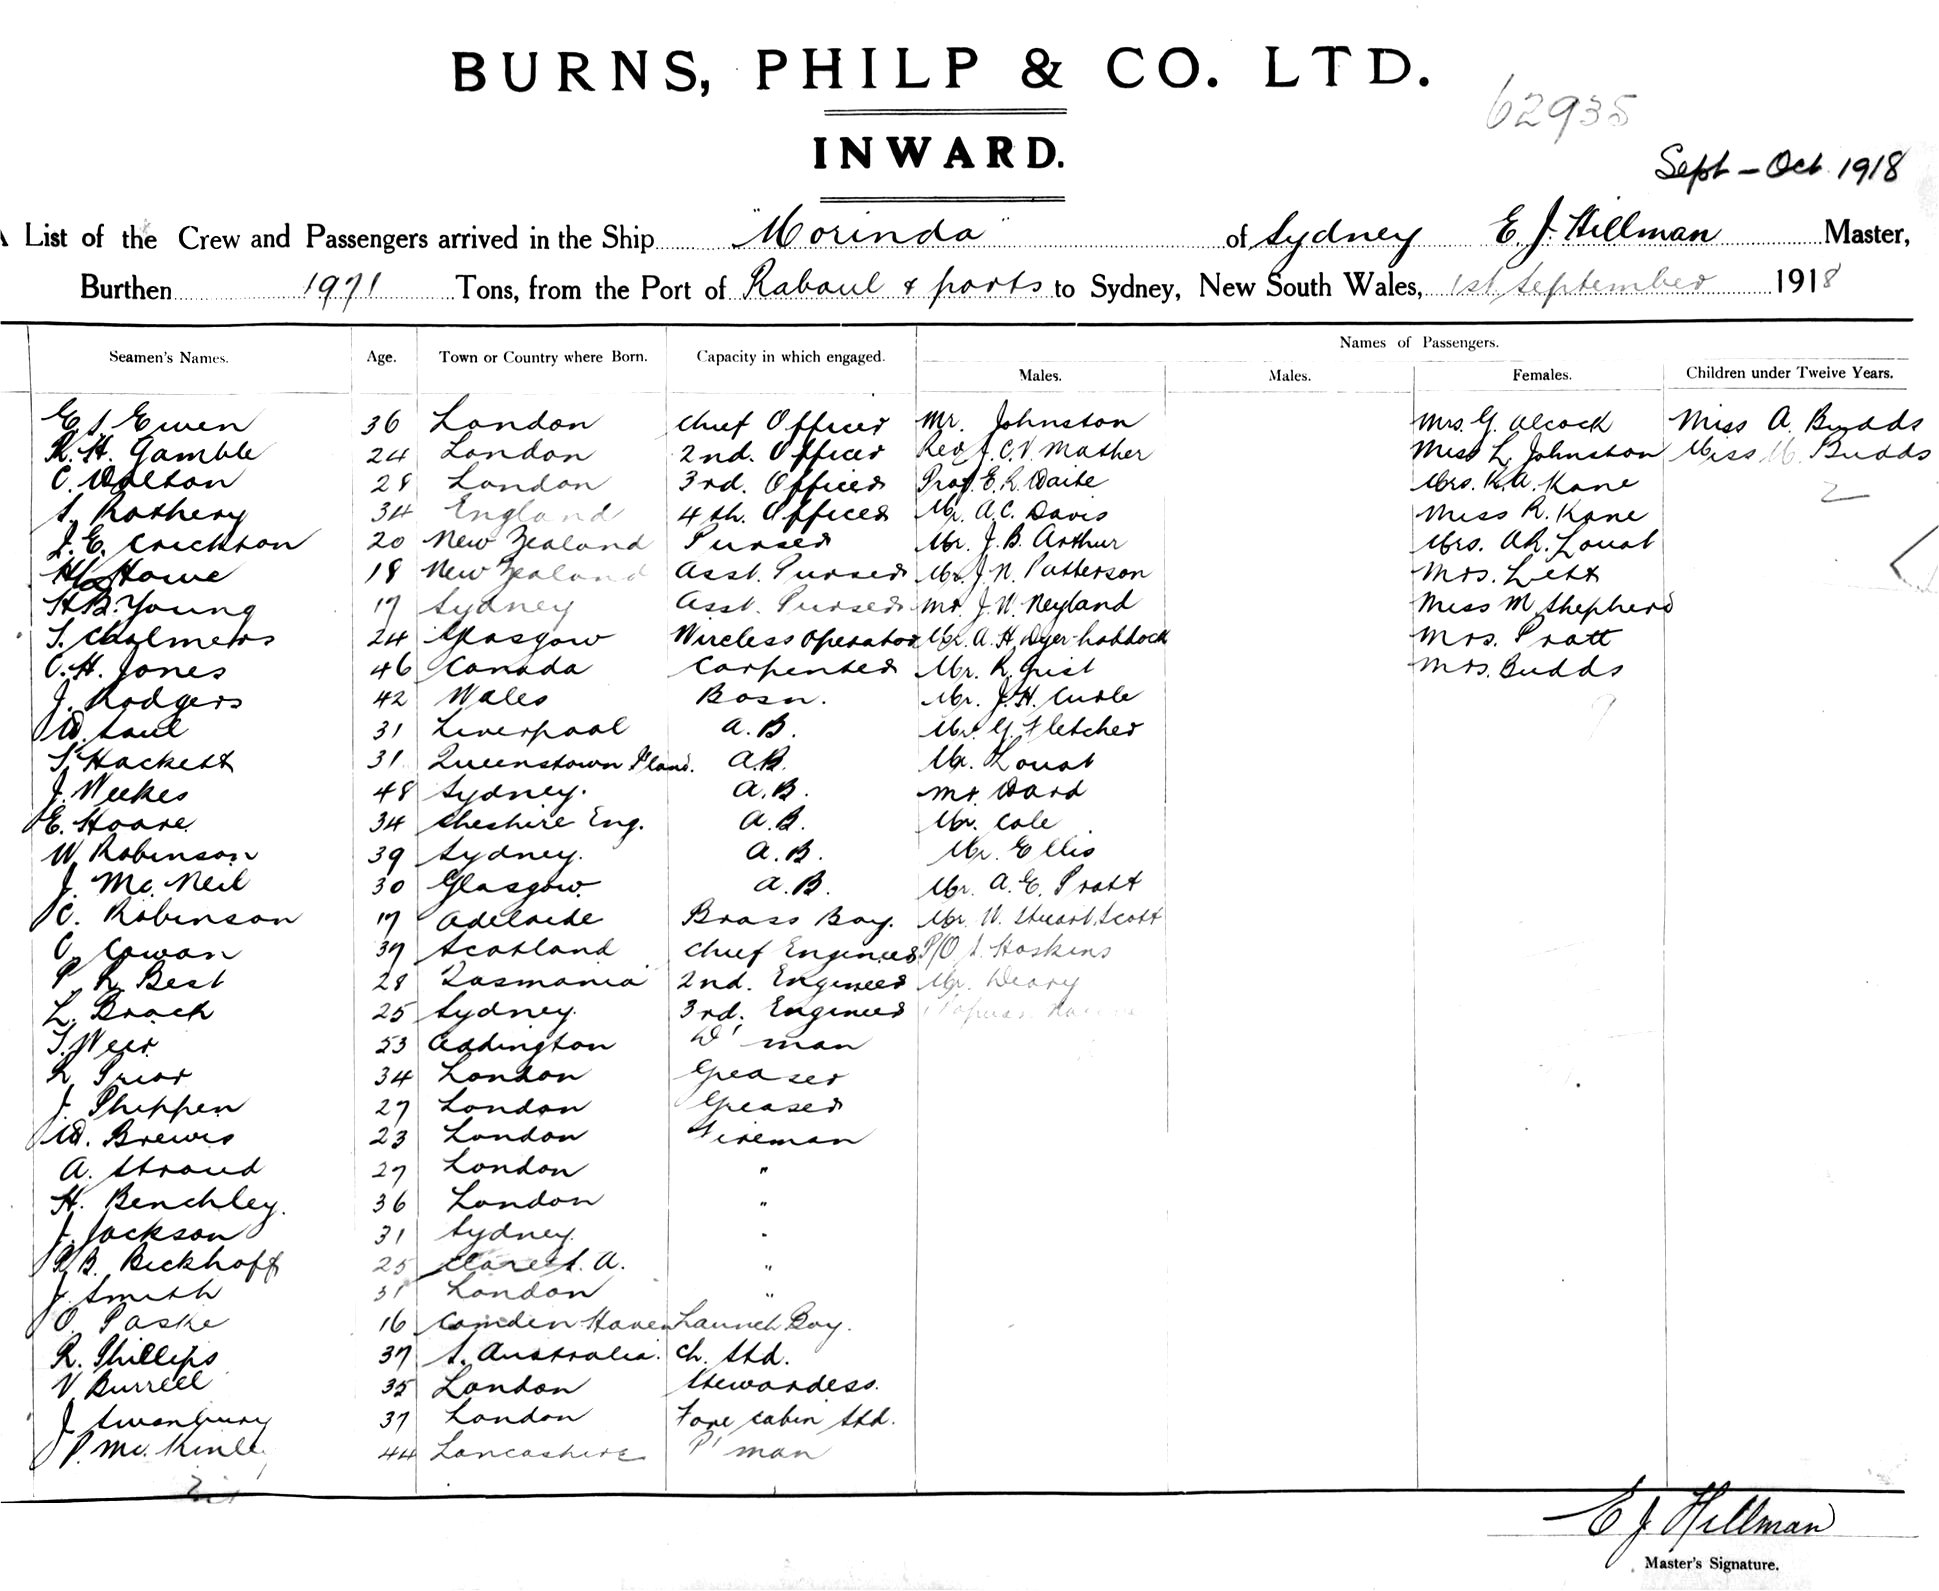 BURNS, PHILP & CO. LTD.
62935
INWARD.
Sept - Oct 1918
List of the Crew and Passengers arrived in the Ship "Morinda" of Sydney E. J. Hillman Master,
Burthen 1971 Tons, from the Port of Rabaul & ports to Sydney, New South Wales, 1st September 1918
Names of Passengers.
Seamen's Names. Age. Town or Country where Born. Capacity in which engaged. Males. Males. Females. Children under Twelve Years.
E. S. Ewen 36 London Chief Officer Mr. Johnston Mrs. G. Alcock Miss A. Budds
R. H. Gamble 24 London 2nd. Officer Rev J. C. V. Mather Miss L. Johnston Miss M. Budds
C. Walton 28 London 3rd. Officer Prof. E. R. Waite Mrs. R. A. Kane 2
S. Rothery 34 England 4th. Officer Mr. A. C. Davis Miss R. Kane
J. E. Crickton 20 New Zealand Purser Mr. J. B. Arthur Mrs. Louat
Howe 18 New Zealand Asst. Purser Mr. J. N. Patterson Mrs. Lett
H. B. Young 17 Sydney Asst. Purser Mr. J. W. Neyland Miss M. Shepherd
S. Chalmers 24 Glasgow Wireless Operator Mr. A. H. Dyer-haddock Mrs. Pratt
C. H. Jones 46 Canada Carpenter Mr. R. Grist Mrs. Budds
J. Rodgers 42 Wales Bosn. Mr. J. H. Curle 9
W. Saul 31 Liverpool A. B. Mr. G. Fletcher
Hackett 31 Queenstown A.B. Mr. Louat
J. Weekes 48 Sydney. A. B. Mr. Ward
E. Hoare 34 Cheshire Eng. A. B. Mr. Cole
W. Robinson 39 Sydney. A. B. Mr. Ellis
J. Mc. Neil 30 Glasgow. A. B. Mr. A. E. Pratt
C. Robinson 17 Adelaide Brass Boy. Mr. W. Stuart Scott
C. Cowan 37 Scotland Chief Engineer P/O S. Hoskins
P. R. Best 28 Tasmania 2nd. Engineer Mr. Deary
L. Brack 25 Sydney. 3rd. Engineer
Weir 53 Addington D' man
R. Prior 34 London Greaser
J. Phippen 27 London Greaser
W. Brewis 23 London Fireman
A. Stroud 27 London "
H. Benchley. 36 London "
J. Jackson 31 Sydney. "
B. Bickhoff 25 Clare S. A. "
J. Smith 31 London "
O. Paske 16 Camden Haven Launch Boy.
R. Phillips 37 S. Australia. Ch. Std.
V. Burrell 35 London Stewardess.
J. Swanbury 37 London Fore Cabin Std.
P. Mc. 44 Lancashire P' man
E J Hillman
Master's Signature.